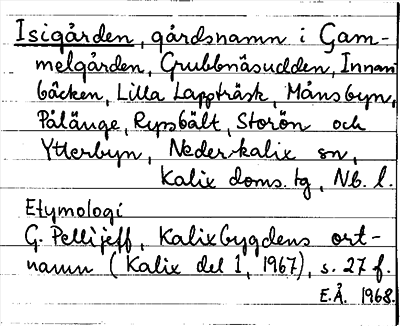 Isigården, gårdsnamn i Gam-
melgården, Grubbnäsudden, Innan-
bäcken, Lilla Lappträsk, Månsbyn,
Pålänge, Rypsbält, Storön och
Ytterbyn, Nederkalix sn,
Kalix doms. tg, Nb. l.
Etymologi
G. Pellijeff, Kalixbygdens ort-
namn (Kalix del 1, 1967), s. 27 f.
E.Å. 1968.